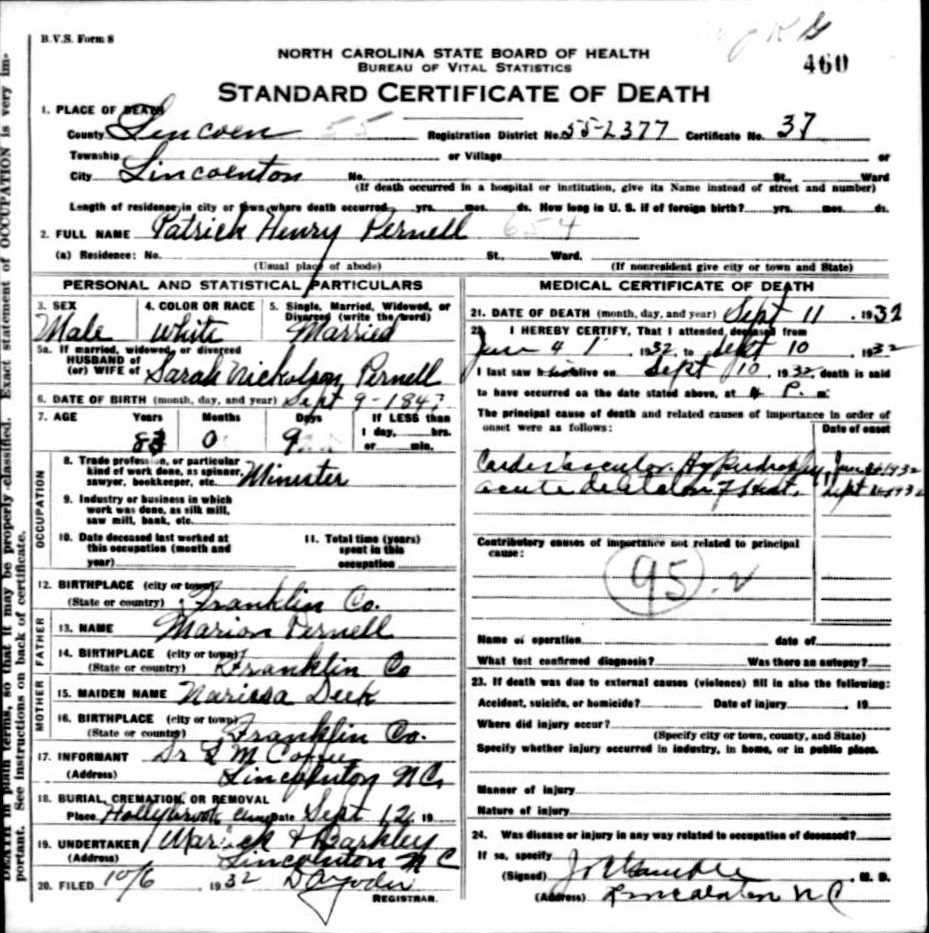 B.V.S. Form 8
460
NORTH CAROLINA STATE BOARD OF HEALTH
BUREAU OF VITAL STATISTICS
STANDARD CERTIFICATE OF DEATH
1. PLACE OF DEATH
County Lincoln 55 Registration District No. 55-2377 Certificate No. 37
Township or Village or
City Lincolnton No. St., Ward
(If death occurred in a hospital or institution, give its Name instead of street and number)
Length of residence in city or town where death occurred yrs. mos. ds. How long in U. S. if of foreign birth? yrs. mos. ds.
2. FULL NAME Patrick Henry Pernell 654
(a) Residence: No. St., Ward.
(Usual place of abode) (If nonresident give city or town and State)
PERSONAL AND STATISTICAL PARTICULARS
3. SEX 4. COLOR OR RACE 5. Single, Married, Widowed, or Divorced (write the word)
Male White Married
5a. If married, widowed, or divorced
HUSBAND of
(or) WIFE of Sarah Nickolson Pernell
6. DATE OF BIRTH (month, day, and year) Sept 9-184
7. AGE Years Months Days If LESS than
1 day, hrs.
or min.
83 0 9
OCCUPATION
8. Trade profession, or particular
kind of work done, as spinner,
sawyer, bookkeeper, etc. Minister
9. Industry or business in which
work was done, as silk mill,
saw mill, bank, etc.
10. Date deceased last worked at
this occupation (month and
year)
11. Total time (years)
spent in this
occupation
12. BIRTHPLACE (city or town)
(State or country) Franklin Co.
FATHER
13. NAME Marion Pernell
14. BIRTHPLACE (city or town)
(State or country) Franklin Co
MOTHER
15. MAIDEN NAME Narissa
16. BIRTHPLACE (city or town)
(State or country) Franklin Co.
17. INFORMANT Dr L M
(Address) Lincolnton N C.
18. BURIAL, CREMATION, OR REMOVAL
Place Hollybrook Date Sept 12 19
19. UNDERTAKER Warlick & Barkley
(Address) Lincolnton N C
20. FILED 10/6 1932 D A Yoder
REGISTRAR.
MEDICAL CERTIFICATE OF DEATH
21. DATE OF DEATH (month, day, and year) Sept 11 1932
22. I HEREBY CERTIFY, That I attended, deceased from
1932, to Sept 10, 1932
I last saw h alive on Sept 10, 1932 death is said
to have occurred on the date stated above, at 4 P. m.
The principal cause of death and related causes of importance in order of
onset were as follows: Date of onset
Cardiovascular
acute dilation of Heart. Sept
Contributory causes of importance not related to principal
cause:
95
Name of operation date of
What test confirmed diagnosis? Was there an autopsy?
23. If death was due to external causes (violence) fill in also the following:
Accident, suicide, or homicide? Date of injury , 19
Where did injury occur?
(Specify city or town, county, and State)
Specify whether injury occurred in industry, in home, or in public place.
Manner of injury
Nature of injury
24. Was disease or injury in any way related to occupation of deceased?
If so, specify
(Signed) M. D.
(Address) Lincolnton N C
DEATH in plain terms, so that it may be properly classified. Exact statement of OCCUPATION is very im-
portant. See instructions on back of certificate.